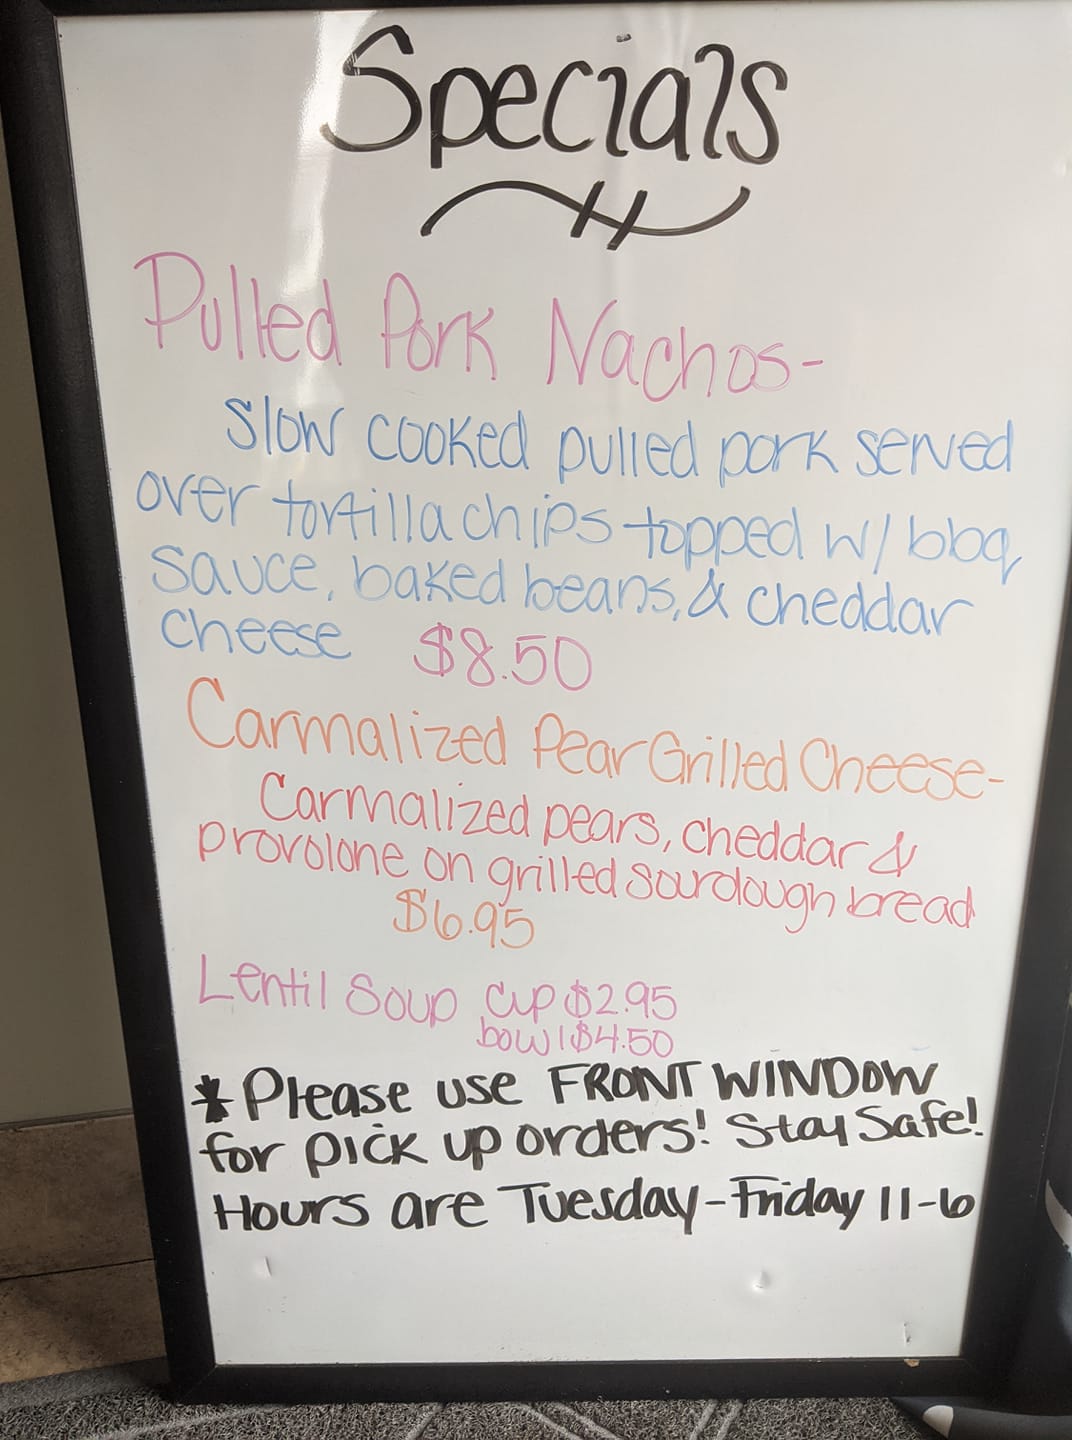 Specials
Pulled Pork Nachos-
Slow cooked pulled pork served
over tortilla chips topped w/ bbq
sauce, baked beans, & cheddar
cheese $8.50
Carmalized Pear Grilled Cheese-
Carmalized pears, cheddar &
provolone on grilled sourdough bread
$6.95
Lentil Soup cup $2.95
bowl $4.50
*Please use FRONT WINDOW
for pick up orders! Stay Safe!
Hours are Tuesday-Friday 11-6